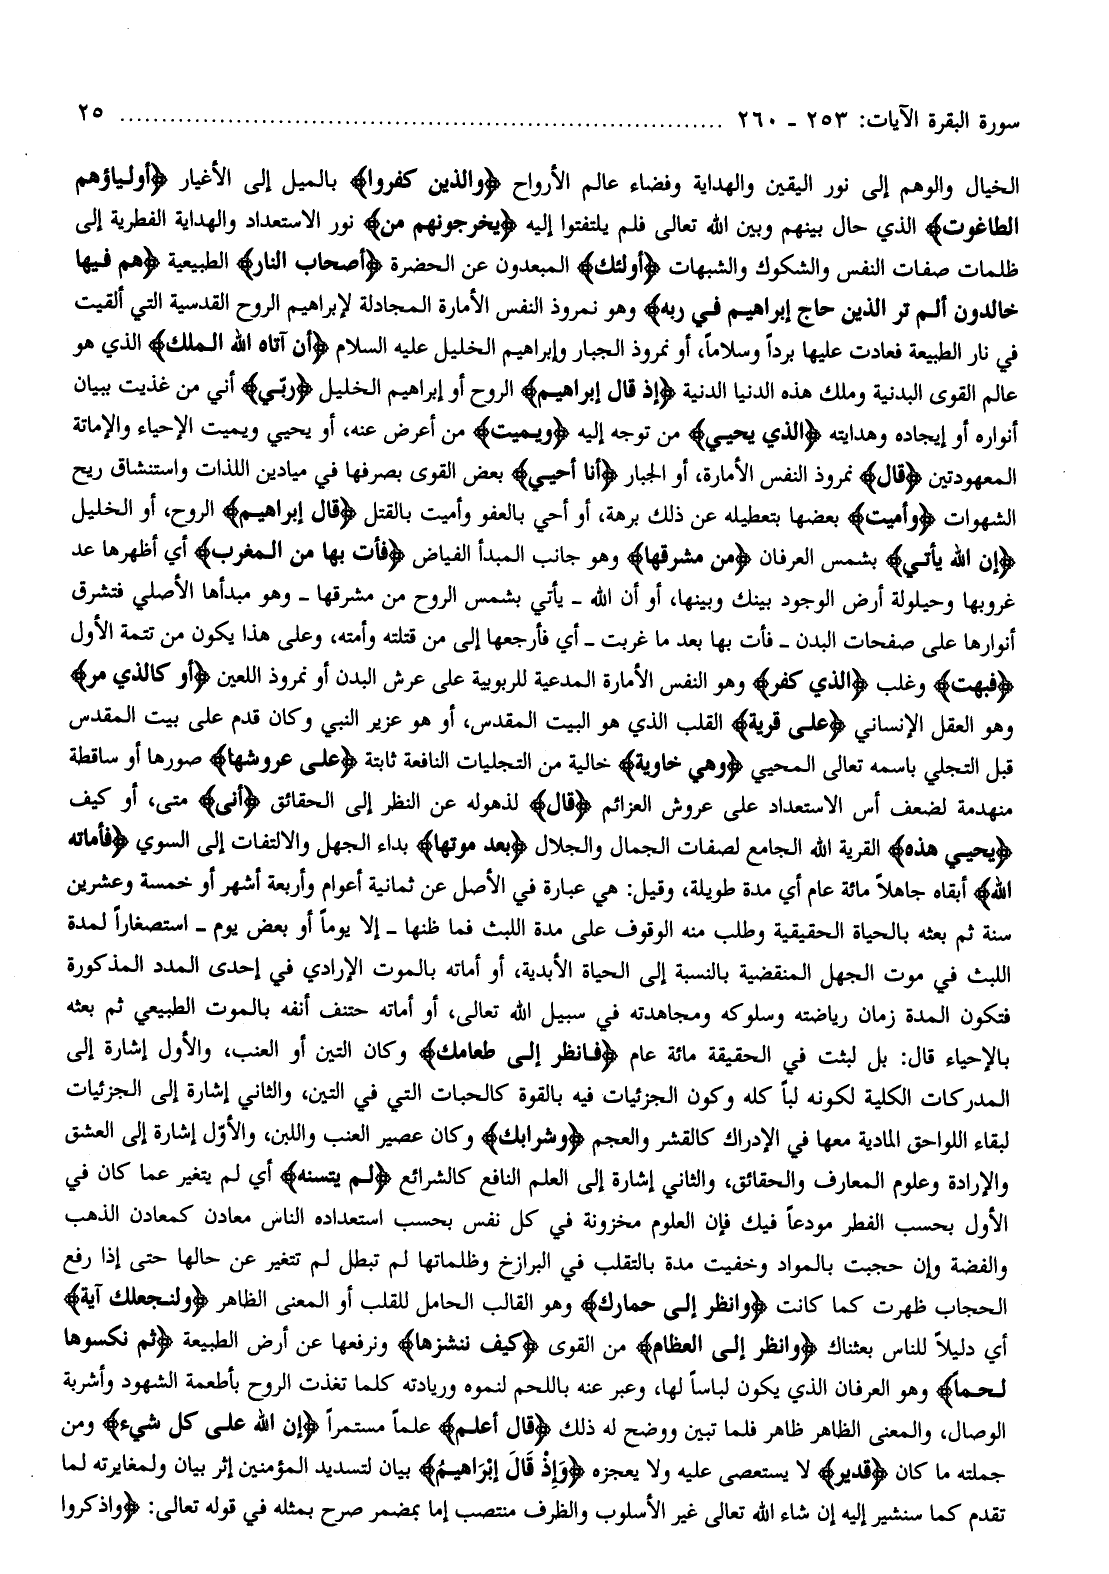 سورة البقرة الآيات: ٢٥٣ ـ ٢٦٠ ........................................................................ ٢٥
الخيال والوهم إلى نور اليقين والهداية وفضاء عالم الأرواح ﴿والذين كفروا﴾ بالميل إلى الأغيار ﴿أولياؤهم
الطاغوت﴾ الذي حال بينهم وبين الله تعالى فلم يلتفتوا إليه ﴿يخرجونهم من﴾ نور الاستعداد والهداية الفطرية إلى
ظلمات صفات النفس والشكوك والشبهات ﴿أولئك﴾ المبعدون عن الحضرة ﴿أصحاب النار﴾ الطبيعية ﴿هم فيها
خالدون ألم تر الذين حاج إبراهيم في ربه﴾ وهو نمروذ النفس الأمارة المجادلة لإبراهيم الروح القدسية التي ألقيت
في نار الطبيعة فعادت عليها برداً وسلاماً، أو نمروذ الجبار وإبراهيم الخليل عليه السلام ﴿أن آتاه الله الملك﴾ الذي هو
عالم القوى البدنية وملك هذه الدنيا الدنية ﴿إذ قال إبراهيم﴾ الروح أو إبراهيم الخليل ﴿ربّي﴾ أني من غذيت ببيان
أنواره أو إيجاده وهدايته ﴿الذي يحيي﴾ من توجه إليه ﴿ويميت﴾ من أعرض عنه، أو يحيي ويميت الإحياء والإماتة
المعهودتين ﴿قال﴾ نمروذ النفس الأمارة، أو الجبار ﴿أنا أحيي﴾ بعض القوى بصرفها في ميادين اللذات واستنشاق ريح
الشهوات ﴿وأميت﴾ بعضها بتعطيله عن ذلك برهة، أو أحي بالعفو وأميت بالقتل ﴿قال إبراهيم﴾ الروح، أو الخليل
﴿إن الله يأتي﴾ بشمس العرفان ﴿من مشرقها﴾ وهو جانب المبدأ الفياض ﴿فأت بها من المغرب﴾ أي أظهرها عد
غروبها وحيلولة أرض الوجود بينك وبينها، أو أن الله ـ يأتي بشمس الروح من مشرقها ـ وهو مبدأها الأصلي فتشرق
أنوارها على صفحات البدن ـ فأت بها بعد ما غربت ـ أي فأرجعها إلى من قتلته وأمته، وعلى هذا يكون من تتمة الأول
﴿فبهت﴾ وغلب ﴿الذي كفر﴾ وهو النفس الأمارة المدعية للربوبية على عرش البدن أو نمروذ اللعين ﴿أو كالذي مر﴾
وهو العقل الإنساني ﴿على قرية﴾ القلب الذي هو البيت المقدس، أو هو عزير النبي وكان قدم على بيت المقدس
قبل التجلي باسمه تعالى المحيي ﴿وهي خاوية﴾ خالية من التجليات النافعة ثابتة ﴿على عروشها﴾ صورها أو ساقطة
منهدمة لضعف أس الاستعداد على عروش العزائم ﴿قال﴾ لذهوله عن النظر إلى الحقائق ﴿أنى﴾ متى، أو كيف
﴿يحيي هذه﴾ القرية الله الجامع لصفات الجمال والجلال ﴿بعد موتها﴾ بداء الجهل والالتفات إلى السوي ﴿فأماته
الله﴾ أبقاه جاهلاً مائة عام أي مدة طويلة، وقيل: هي عبارة في الأصل عن ثمانية أعوام وأربعة أشهر أو خمسة وعشرين
سنة ثم بعثه بالحياة الحقيقية وطلب منه الوقوف على مدة اللبث فما ظنها ـ إلا يوماً أو بعض يوم ـ استصغاراً لمدة
اللبث في موت الجهل المنقضية بالنسبة إلى الحياة الأبدية، أو أماته بالموت الإرادي في إحدى المدد المذكورة
فتكون المدة زمان رياضته وسلوكه ومجاهدته في سبيل الله تعالى، أو أماته حتنف أنفه بالموت الطبيعي ثم بعثه
بالإحياء قال: بل لبثت في الحقيقة مائة عام ﴿فانظر إلى طعامك﴾ وكان التين أو العنب، والأول إشارة إلى
المدركات الكلية لكونه لباً كله وكون الجزئيات فيه بالقوة كالحبات التي في التين، والثاني إشارة إلى الجزئيات
لبقاء اللواحق المادية معها في الإدراك كالقشر والعجم ﴿وشرابك﴾ وكان عصير العنب واللبن، والأوّل إشارة إلى العشق
والإرادة وعلوم المعارف والحقائق، والثاني إشارة إلى العلم النافع كالشرائع ﴿لم يتسنه﴾ أي لم يتغير عما كان في
الأول بحسب الفطر مودعاً فيك فإن العلوم مخزونة في كل نفس بحسب استعداده الناس معادن كمعادن الذهب
والفضة وإن حجبت بالمواد وخفيت مدة بالتقلب في البرازخ وظلماتها لم تبطل لم تتغير عن حالها حتى إذا رفع
الحجاب ظهرت كما كانت ﴿وانظر إلى حمارك﴾ وهو القالب الحامل للقلب أو المعنى الظاهر ﴿ولنجعلك آية﴾
أي دليلاً للناس بعثناك ﴿وانظر إلى العظام﴾ من القوى ﴿كيف ننشزها﴾ ونرفعها عن أرض الطبيعة ﴿ثم نكسوها
لحماً﴾ وهو العرفان الذي يكون لباساً لها، وعبر عنه باللحم لنموه وريادته كلما تغذت الروح بأطعمة الشهود وأشربة
الوصال، والمعنى الظاهر ظاهر فلما تبين ووضح له ذلك ﴿قال أعلم﴾ علماً مستمراً ﴿إن الله على كل شيء﴾ ومن
جملته ما كان ﴿قدير﴾ لا يستعصى عليه ولا يعجزه ﴿وَإِذْ قَالَ إبْرَاهيمُ﴾ بيان لتسديد المؤمنين إثر بيان ولمغايرته لما
تقدم كما سنشير إليه إن شاء الله تعالى غير الأسلوب والظرف منتصب إما بمضمر صرح بمثله في قوله تعالى: ﴿واذكروا